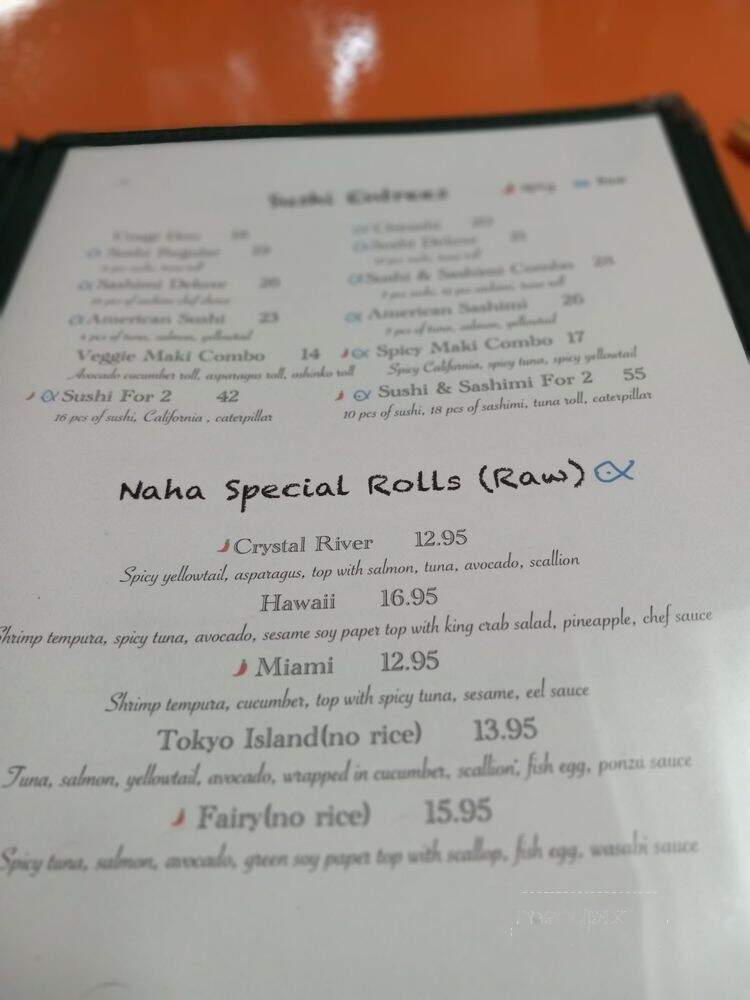 Sushi Entrees
Spicy Raw
Sushi Regular
Sushi Deluxe
Sashimi Deluxe 26
Sushi & Sashimi Combo 28
American Sushi 23
American Sashimi 26
Veggie Maki Combo 14
Spicy Maki Combo 17
Avocado cucumber roll, asparagus roll, oshinko roll
Spicy California, spicy tuna, spicy yellowtail
Sushi For 2 42
Sushi & Sashimi For 2 55
16 pcs of sushi, California , caterpillar
10 pcs of sushi, 18 pcs of sashimi, tuna roll, caterpillar
Naha Special Rolls (Raw)
Crystal River 12.95
Spicy yellowtail, asparagus, top with salmon, tuna, avocado, scallion
Hawaii 16.95
Shrimp tempura, spicy tuna, avocado, sesame soy paper top with king crab salad, pineapple, chef sauce
Miami 12.95
Shrimp tempura, cucumber, top with spicy tuna, sesame, eel sauce
Tokyo Island(no rice) 13.95
Tuna, salmon, yellowtail, avocado, wrapped in cucumber, scallion, fish egg, ponzu sauce
Fairy(no rice) 15.95
Spicy tuna, salmon, avocado, green soy paper top with scallop, fish egg, wasabi sauce
menupix